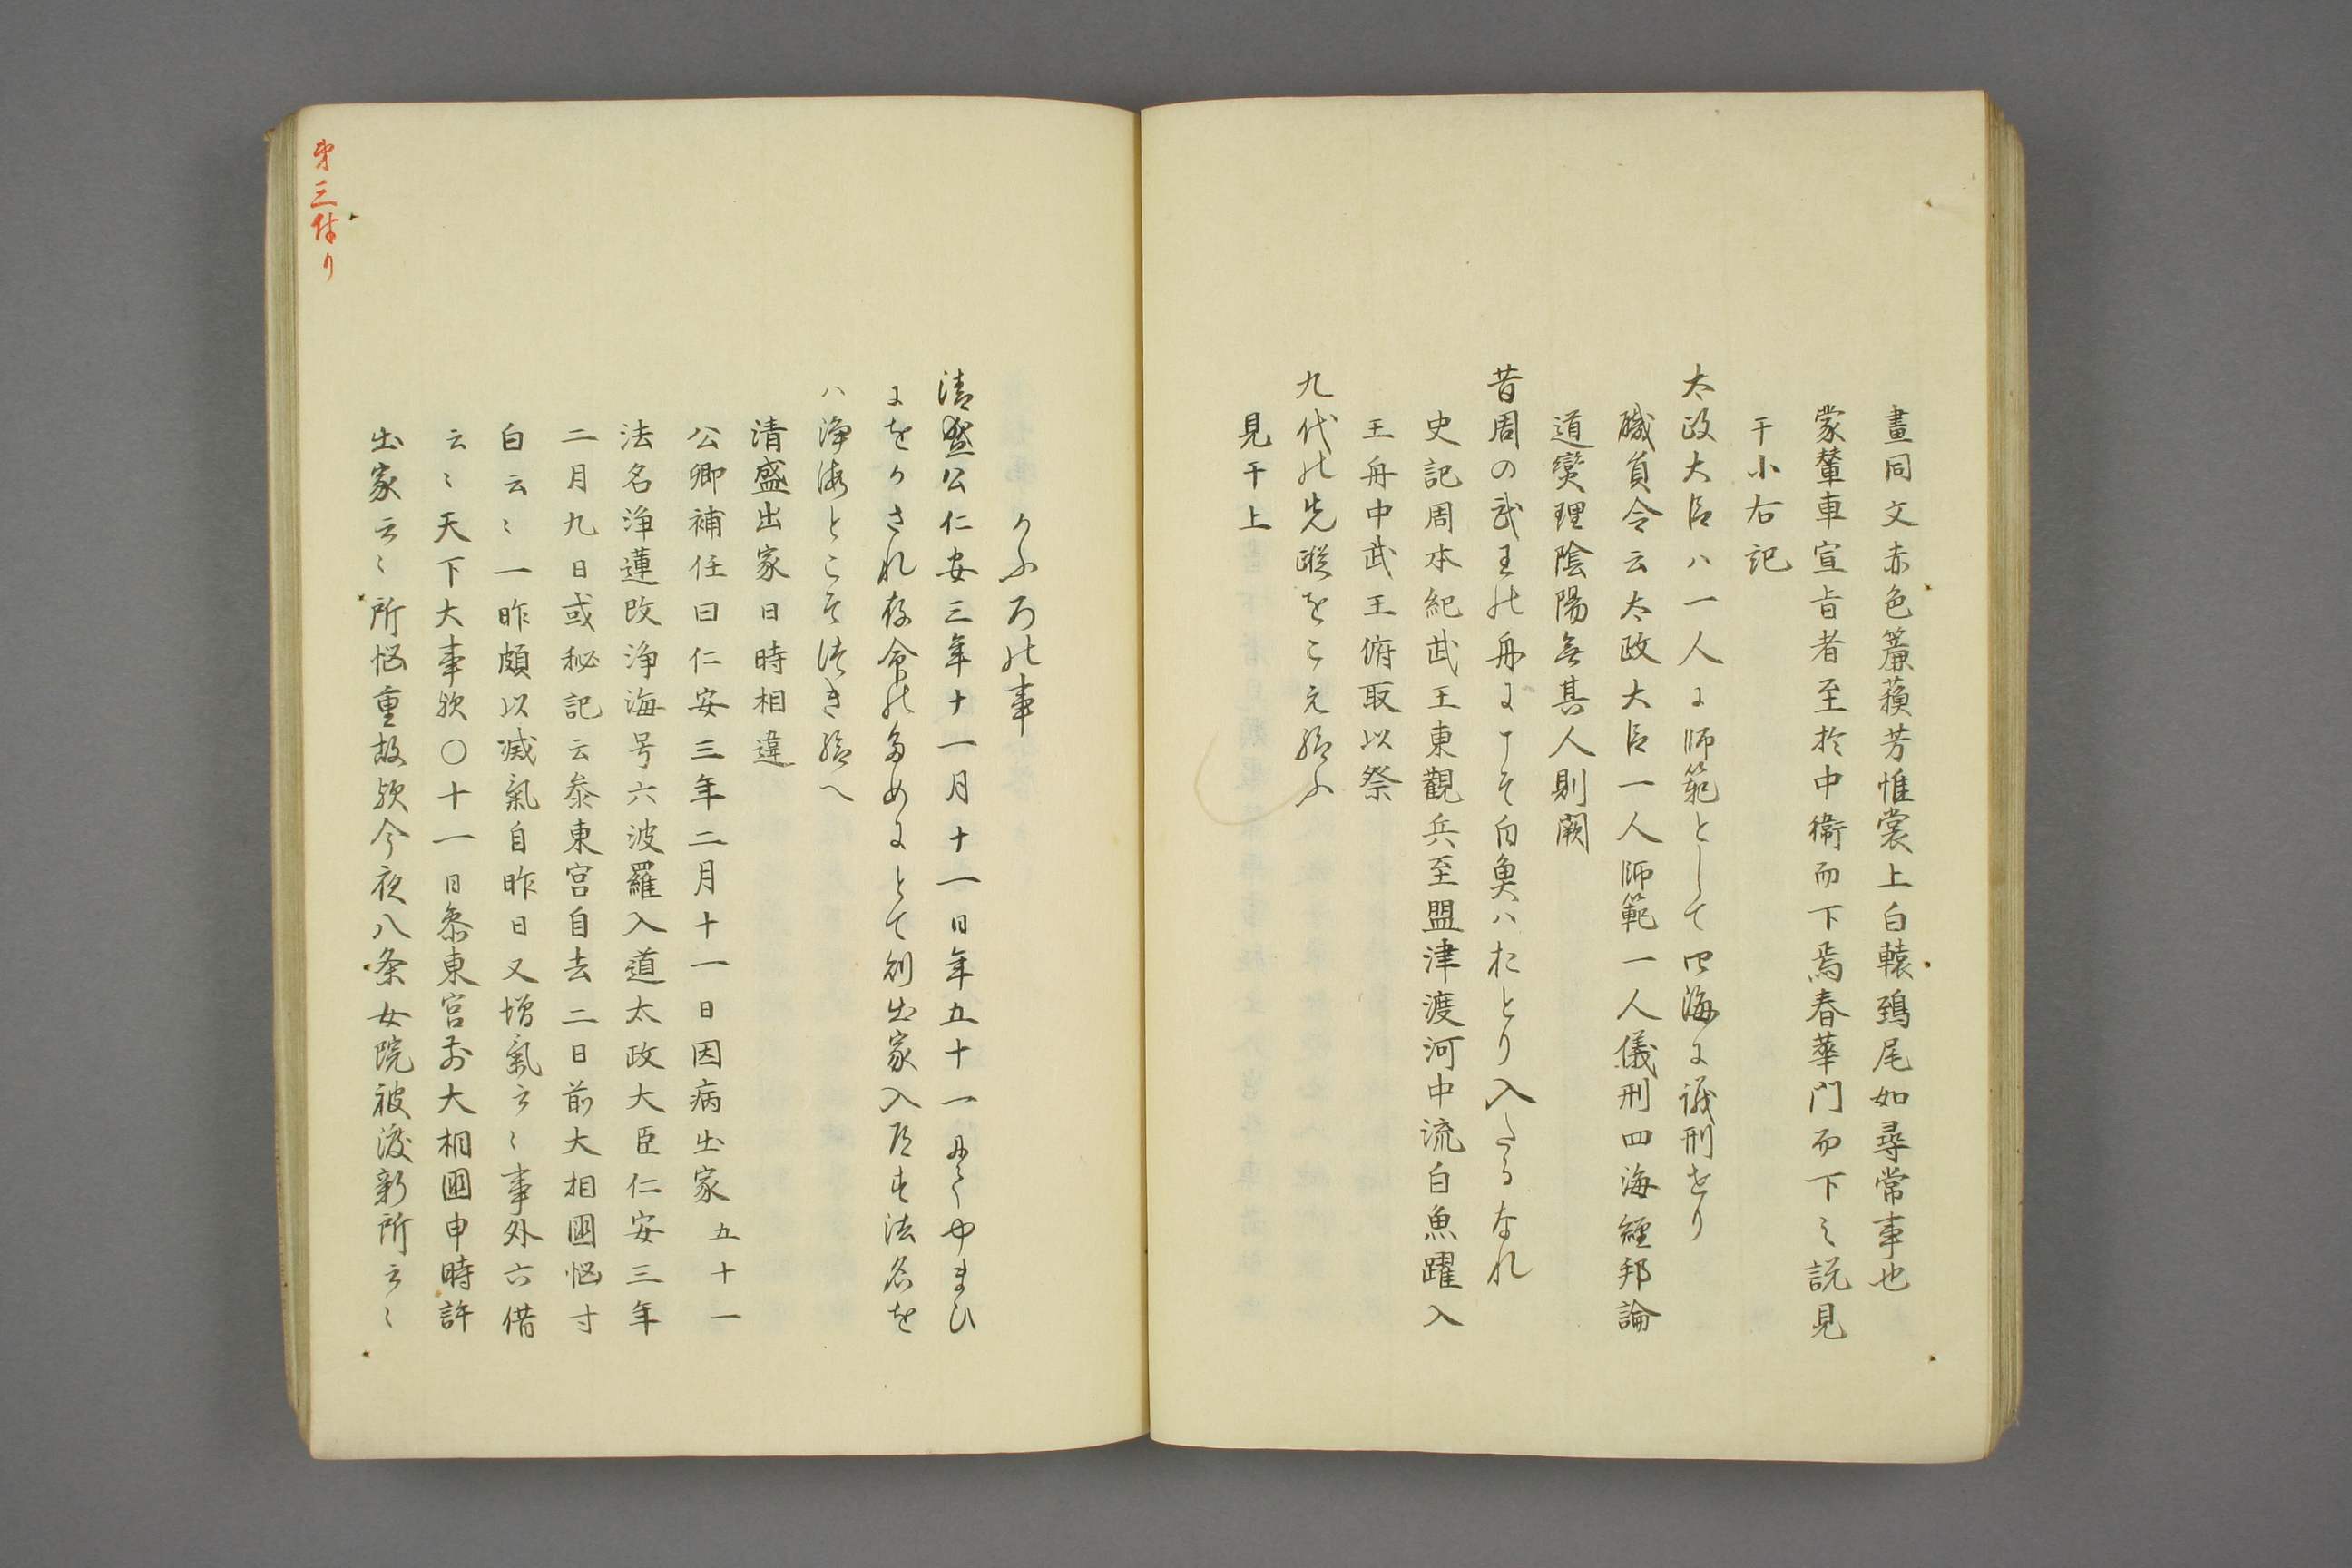 畫同文赤色簾蘓芳帷裳上白轅鵄尾如尋常事也
蒙輦車宣旨者至於中衛而下焉春華门而下之説見
于小右記
太政大臣ハ一人に師範として四海に儀刑せり
職員令云太政大臣一人師範一人儀刑四海經邦論
道爕理陰陽無其人則闕
昔周の武王の舟にこそ白魚ハおとり入たるなれ
史記周本紀武王東觀兵至盟津渡河中流白魚躍入
王舟中武王俯取以祭
九代の先蹤をこえ給ふ
見于上
かふろの事
清盛公仁安三年十一月十一日年五十一にてやまひ
にをかされ存命のためにとて則出家入道す法名を
ハ浄海とこそつき給へ
清盛出家日時相違
公卿補任曰仁安三年二月十一日因病出家 五十一
法名浄蓮改浄海号六波羅入道太政大臣仁安三年
二月九日或秘記云叅東宮自去二日前大相國悩寸
白云〻一昨頗以減氣自昨日又増氣云〻事外六借
云〻天下大事欤〇十一日叅東宮前大相國申時許
出家云〻所悩重故欤今夜八条女院被渡新所云〻
才三付り